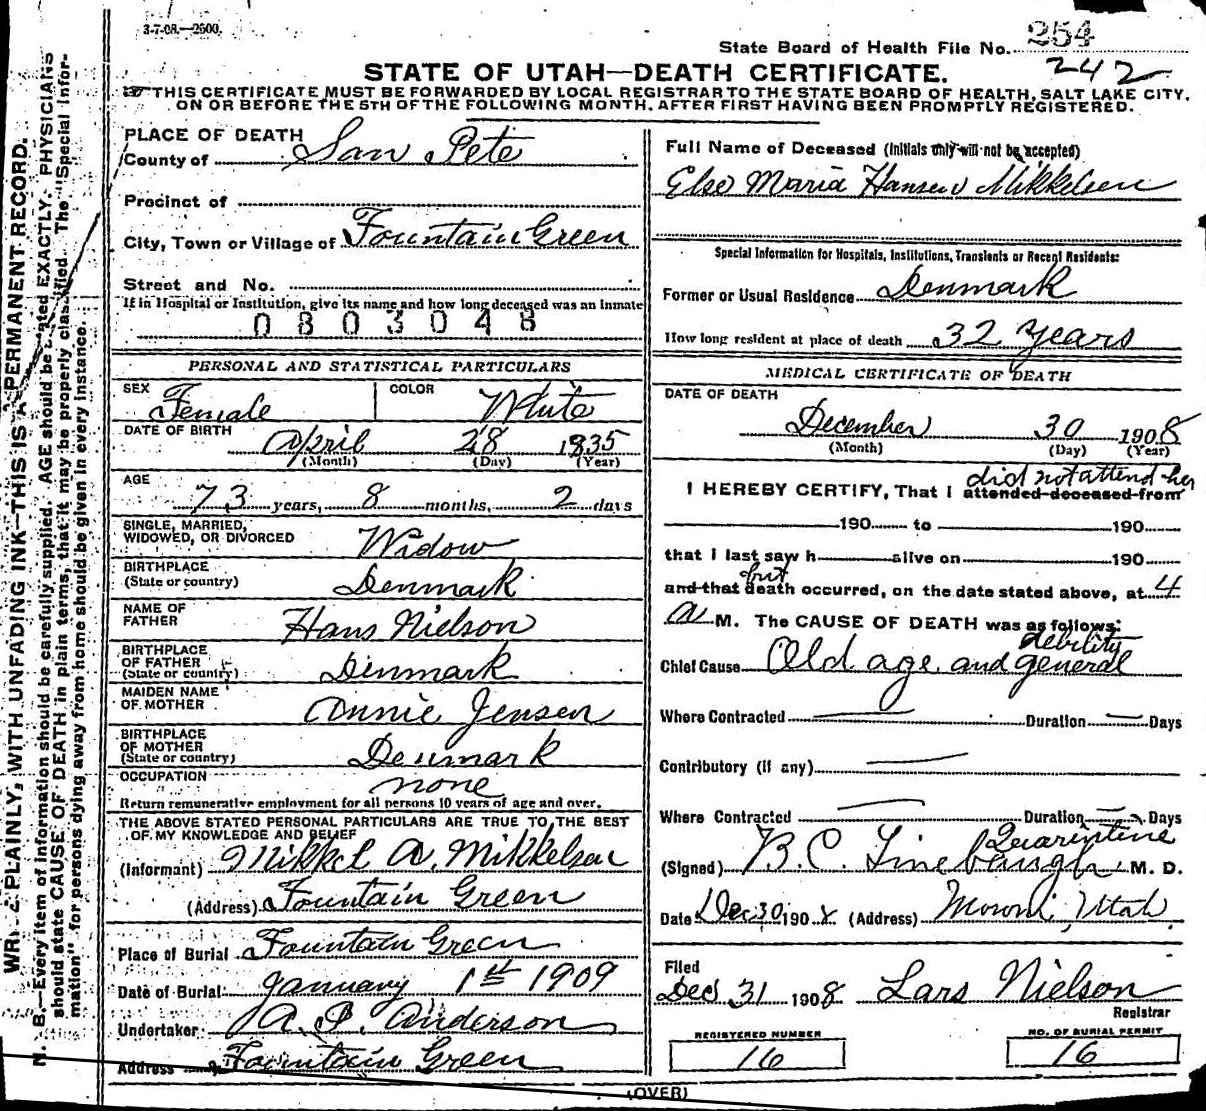 3-7-08.—2500.
State Board of Health File No. 254
242
STATE OF UTAH—DEATH CERTIFICATE.
THIS CERTIFICATE MUST BE FORWARDED BY LOCAL REGISTRAR TO THE STATE BOARD OF HEALTH, SALT LAKE CITY,
ON OR BEFORE THE 5TH OF THE FOLLOWING MONTH, AFTER FIRST HAVING BEEN PROMPTLY REGISTERED.
PLACE OF DEATH
County of San Pete
Precinct of
City, Town or Village of Fountain Green
Street and No.
If in Hospital or Institution, give its name and how long deceased was an inmate
0803048
PERSONAL AND STATISTICAL PARTICULARS
SEX Female COLOR White
DATE OF BIRTH April 28 1835
(Month) (Day) (Year)
AGE
73 years, 8 months, 2 days
SINGLE, MARRIED,
WIDOWED, OR DIVORCED Widow
BIRTHPLACE
(State or country) Denmark
NAME OF
FATHER Hans Nielson
BIRTHPLACE
OF FATHER
(State or country) Denmark
MAIDEN NAME
OF MOTHER Annie Jensen
BIRTHPLACE
OF MOTHER
(State or country) Denmark
OCCUPATION none
Return remunerative employment for all persons 10 years of age and over.
THE ABOVE STATED PERSONAL PARTICULARS ARE TRUE TO THE BEST
OF MY KNOWLEDGE AND BELIEF
(Informant) Mikkel A. Mikkelsen
(Address) Fountain Green
Place of Burial Fountain Green
Date of Burial January 1st 1909
Undertaker A. P. Anderson
Address Fountain Green
Full Name of Deceased (Initials only will not be accepted)
Else Maria Hansen Mikkelsen
Special Information for Hospitals, Institutions, Transients or Recent Residents:
Former or Usual Residence Denmark
How long resident at place of death 32 Years
MEDICAL CERTIFICATE OF DEATH
DATE OF DEATH
December 30 1908
(Month) (Day) (Year)
did not attend her
I HEREBY CERTIFY, That I attended deceased from
190 to 190
that I last saw h alive on 190
but
and that death occurred, on the date stated above, at 4
a M. The CAUSE OF DEATH was as follows:
debility
Chief Cause Old age and general
Where Contracted — Duration — Days
Contributory (if any) —
Where Contracted — Duration — Days
Quarintine
(Signed) B. C. Linebaugh M. D.
Date Dec 30 1908 (Address) Moroni, Utah
Filed
Dec 31 1908 Lars Nielson
Registrar
REGISTERED NUMBER
16
NO. OF BURIAL PERMIT
16
(OVER)
WRITE PLAINLY, WITH UNFADING INK—THIS IS A PERMANENT RECORD.
N. B.—Every item of information should be carefully supplied. AGE should be stated EXACTLY. PHYSICIANS
should state CAUSE OF DEATH in plain terms, that it may be properly classified. The "Special Infor-
mation" for persons dying away from home should be given in every instance.